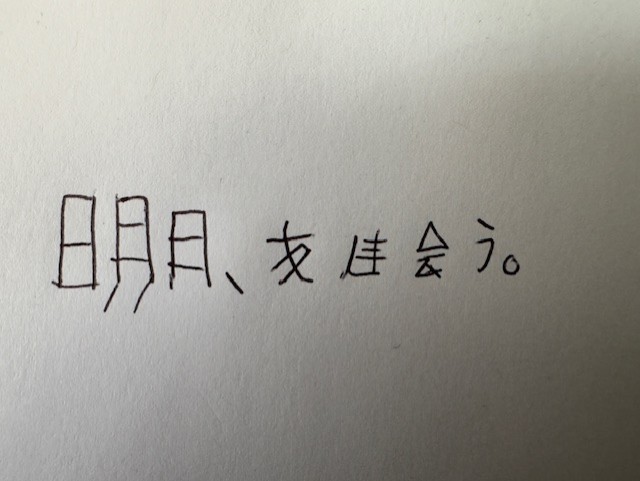 明日、友達会う。